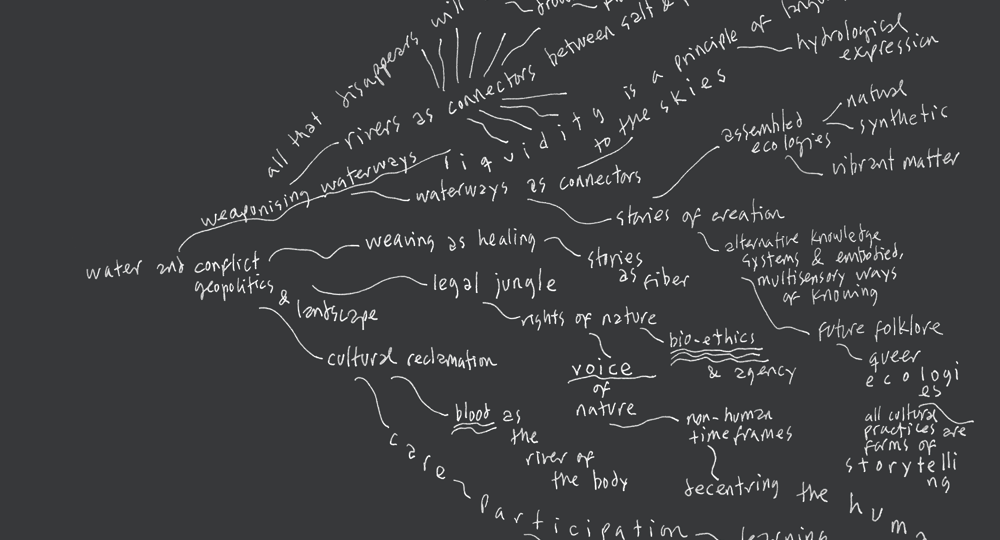 all that disappears will
rivers as connectors between salt &
liquidity is a principle of
hydrological
expression
weaponising waterways
to the skies
waterways as connectors
assembled
ecologies
natural
synthetic
vibrant matter
stories of creation
alternative knowledge
systems & embodied,
multisensory ways
of knowing
future folklore
queer
ecologi
es
all cultural
practices are
forms of
storytelli
ng
water and conflict
geopolitics
& landscape
weaving as healing
stories
as fiber
legal jungle
rights of nature
bio-ethics
& agency
voice
of
nature
non-human
timeframes
decentring the huma
cultural reclamation
blood as
the
river of
the body
care
participation
learning